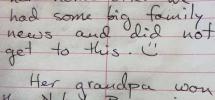 had some big family
news and did not
get to this. ☺
Her grandpa won